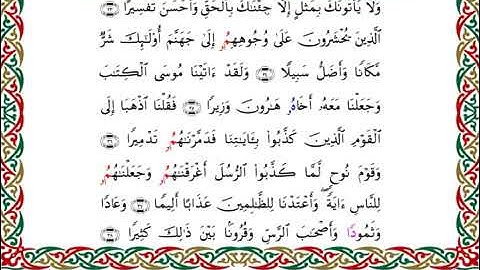 وَلَا يَأْتُونَكَ بِمَثَلٍ إِلَّا جِئْنَٰكَ بِٱلْحَقِّ وَأَحْسَنَ تَفْسِيرًا ٣٣
ٱلَّذِينَ يُحْشَرُونَ عَلَىٰ وُجُوهِهِمُۥٓ إِلَىٰ جَهَنَّمَ أُو۟لَٰٓئِكَ شَرٌّ
مَّكَانًا وَأَضَلُّ سَبِيلًا ٣٤ وَلَقَدْ ءَاتَيْنَا مُوسَى ٱلْكِتَٰبَ
وَجَعَلْنَا مَعَهُۥٓ أَخَاهُۥ هَٰرُونَ وَزِيرًا ٣٥ فَقُلْنَا ٱذْهَبَآ إِلَى
ٱلْقَوْمِ ٱلَّذِينَ كَذَّبُوا۟ بِـَٔايَٰتِنَا فَدَمَّرْنَٰهُمُۥ تَدْمِيرًا ٣٦
وَقَوْمَ نُوحٍ لَّمَّا كَذَّبُوا۟ ٱلرُّسُلَ أَغْرَقْنَٰهُمُۥ وَجَعَلْنَٰهُمُۥ
لِلنَّاسِ ءَايَةً ۖ وَأَعْتَدْنَا لِلظَّٰلِمِينَ عَذَابًا أَلِيمًا ٣٧ وَعَادًا
وَثَمُودًا وَأَصْحَٰبَ ٱلرَّسِّ وَقُرُونًۢا بَيْنَ ذَٰلِكَ كَثِيرًا ٣٨